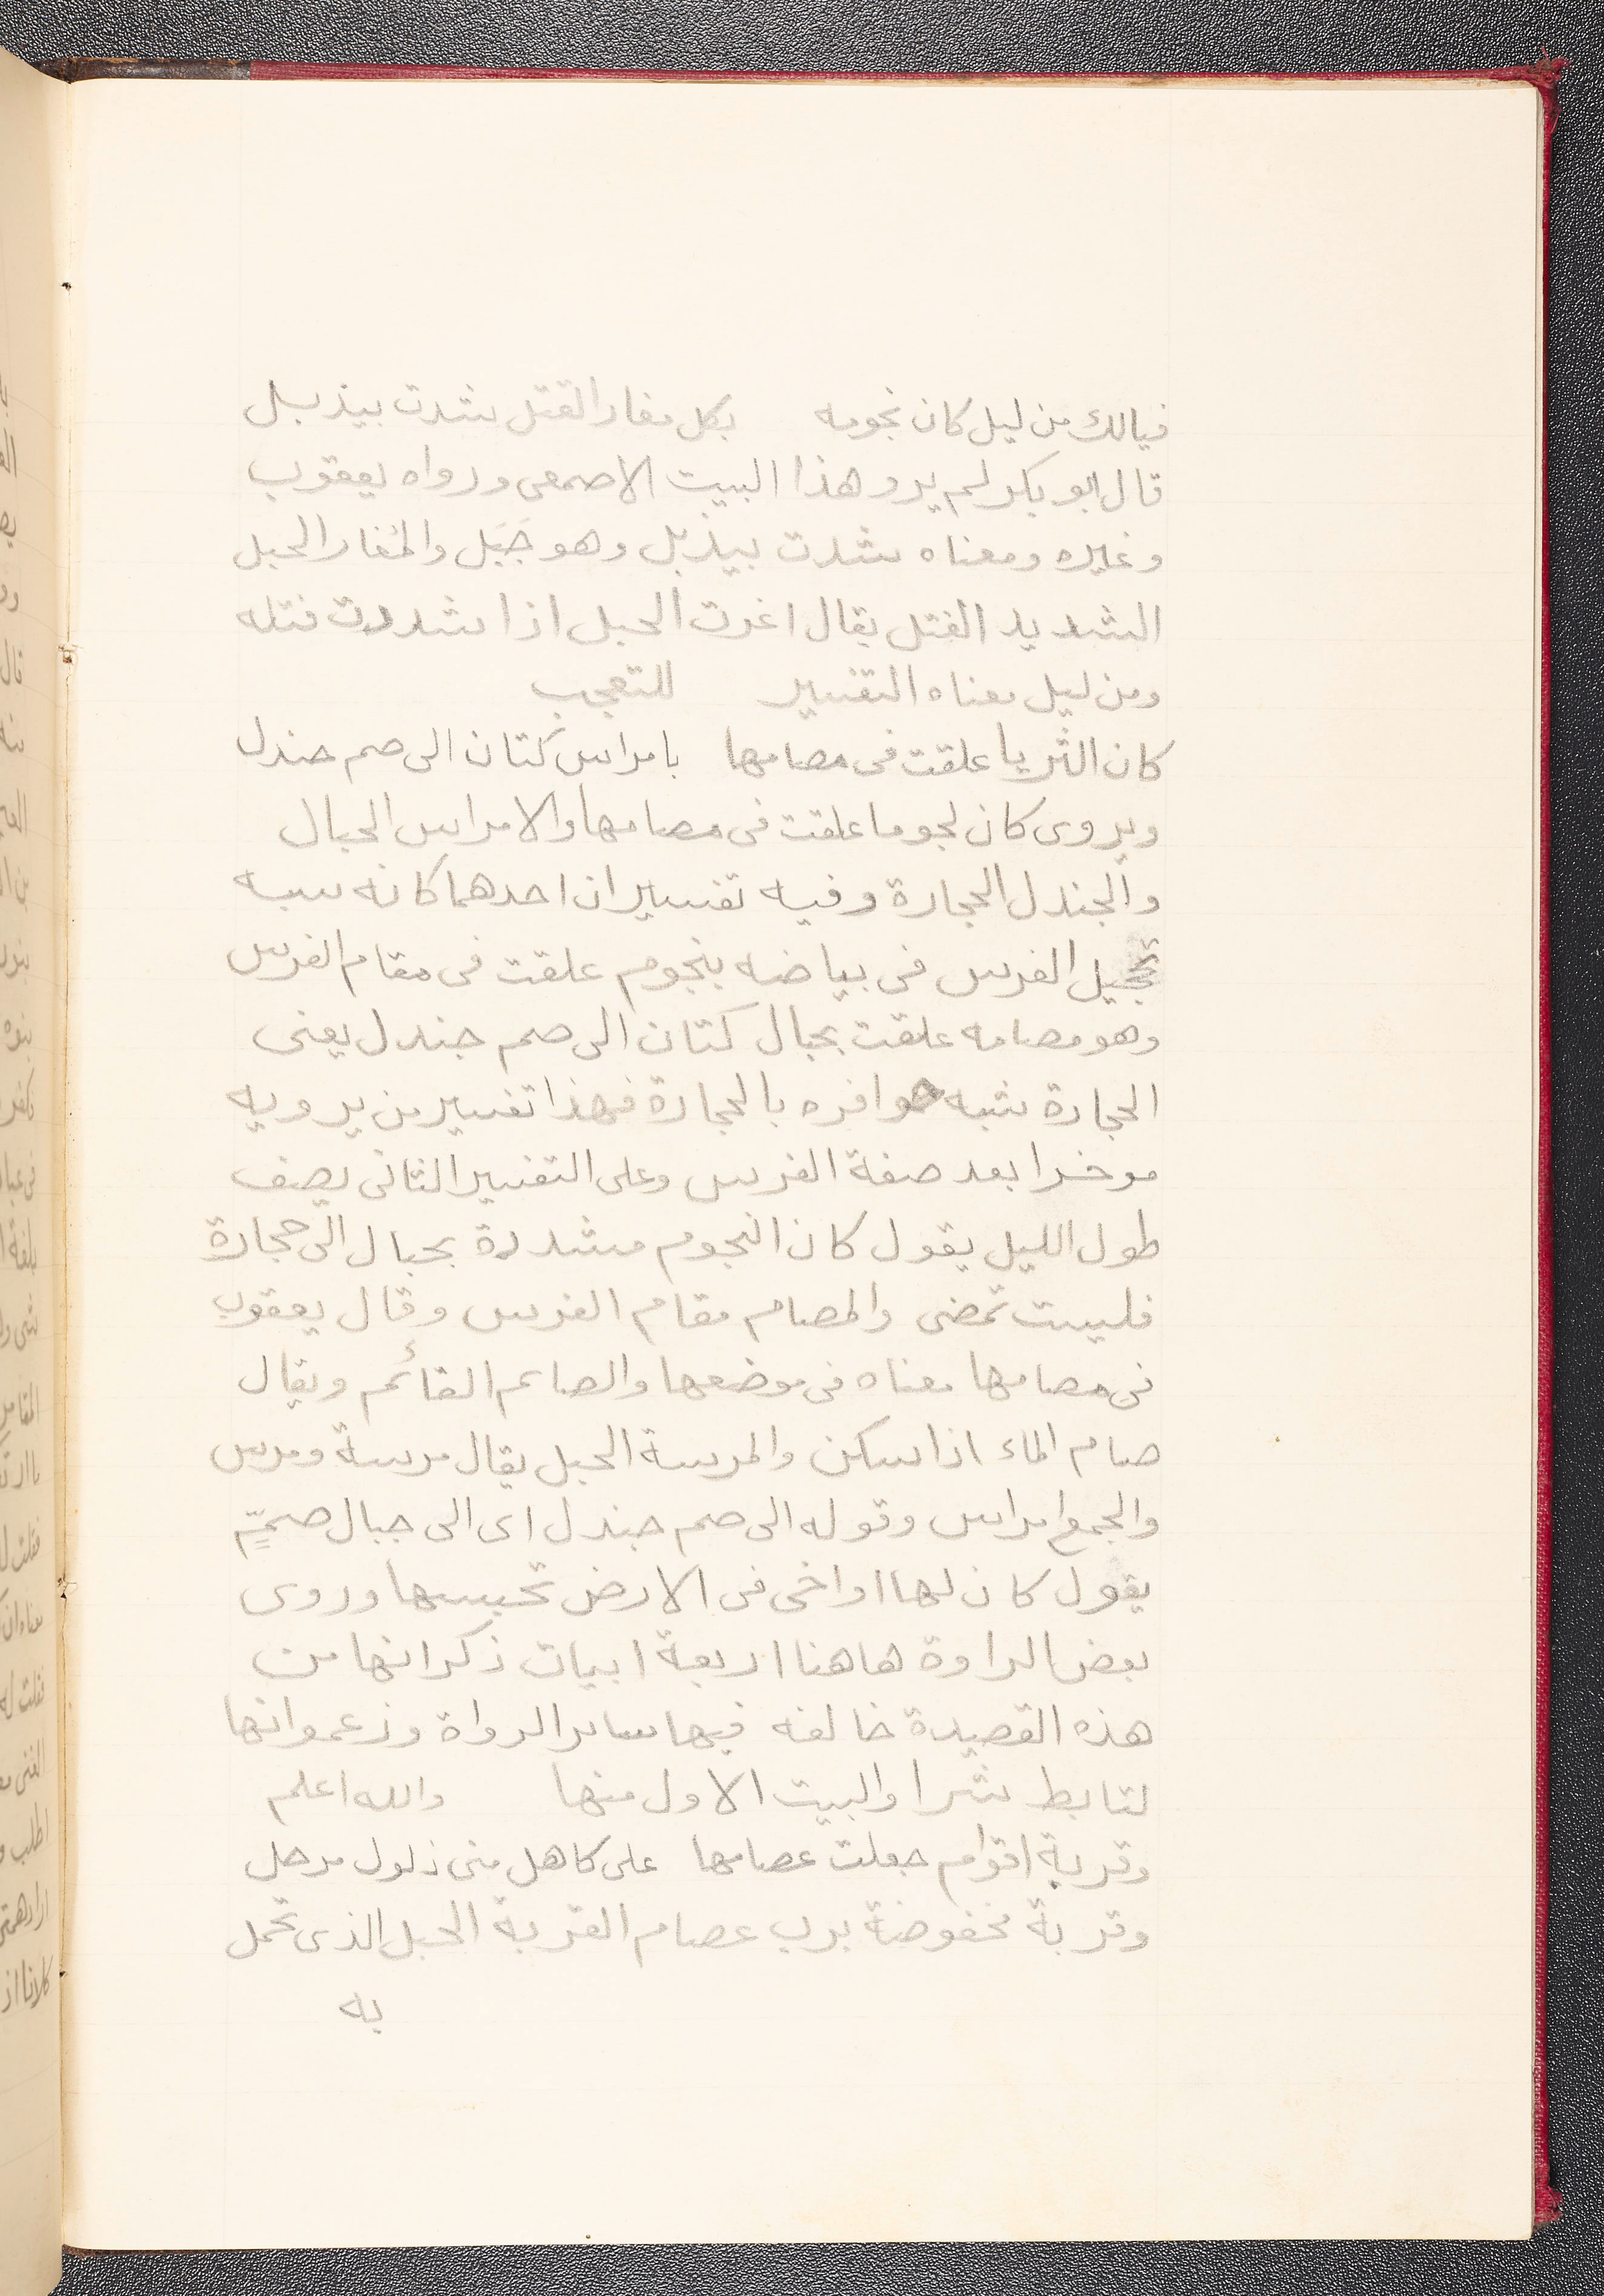 فيالك من ليل كان نجومه بكل مغار الفتل شدت بيذبل
قال ابو بكر لم يرو هذا البيت الاصمعى ورواه يعقوب
وغيره ومعناه شدت بيذبل وهو جَبَل والمُغار الحبل
الشديد الفتل يقال اغرت الحبل اذا شددت فتله
ومن ليل معناه التفسير للتعجب
كان الثريا علقت فى مصامها بامراس كتان الى صم جندل
ويروى كان نجوما علقت فى مصامها والامراس الحبال
والجندل الحجارة وفيه تفسيران احدهما كانه سبه
تحجيل الفرس فى بياضه بنجوم علقت فى مقام الفرس
وهو مصامه علقت بحبال كتان الى صم جندل يعنى
الحجارة شبه حوافره بالحجارة فهذا تفسير من يرويه
موخرا بعد صفة الفرس وعلى التفسير الثانى يصف
طول الليل يقول كان النجوم مشددة بحبال الى حجارة
فليست تمضى والمصام مقام الفرس وقال يعقوب
فى مصامها معناه فى موضعها والصائم القائم ويقال
صام الماء اذا سكن والمرسة الحبل يقال مرسة ومرس
والجمع امراس وقوله الى صم جندل اى الى جبال صمٍّ
يقول كان لها اواخى فى الارض تحبسها وروى
بعض الراوة هاهنا اربعة ابيات ذكر انها من
هذه القصيدة خالفه فيها ساير الرواة وزعموا انها
لتابط شرا والبيت الاول منها والله اعلم
وقربة اقوام جعلت عصامها على كاهل منى ذلول مرحل
وقربة مخفوضة برب عصام القربة الحبل الذى تحمل
به